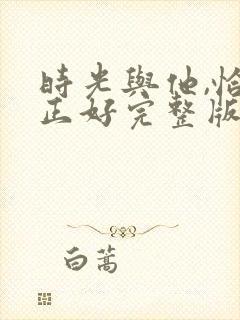 時光與他,恰
正好完整版
白蒿